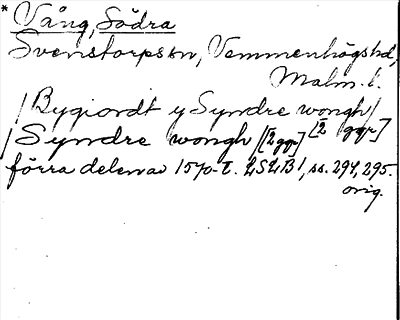 * Vång, Södra
Svenstorps sn, Vemmenhögs hd,
Malm. l.
/Bygiordt y Syndre wongh/
/Syndre wongh/ [2 ggr] [2 ggr]
förra delen av 1570-t. LSLB1, ss. 294, 295.
orig.